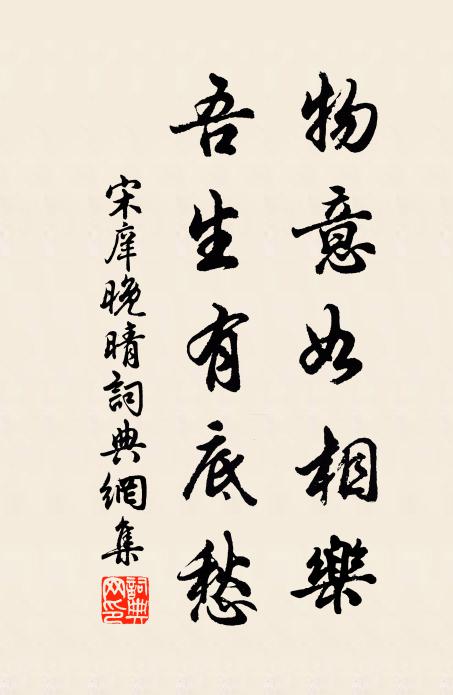 物意如相樂
吾生有底愁
宋庠晚晴詞典網集
詞典
网印